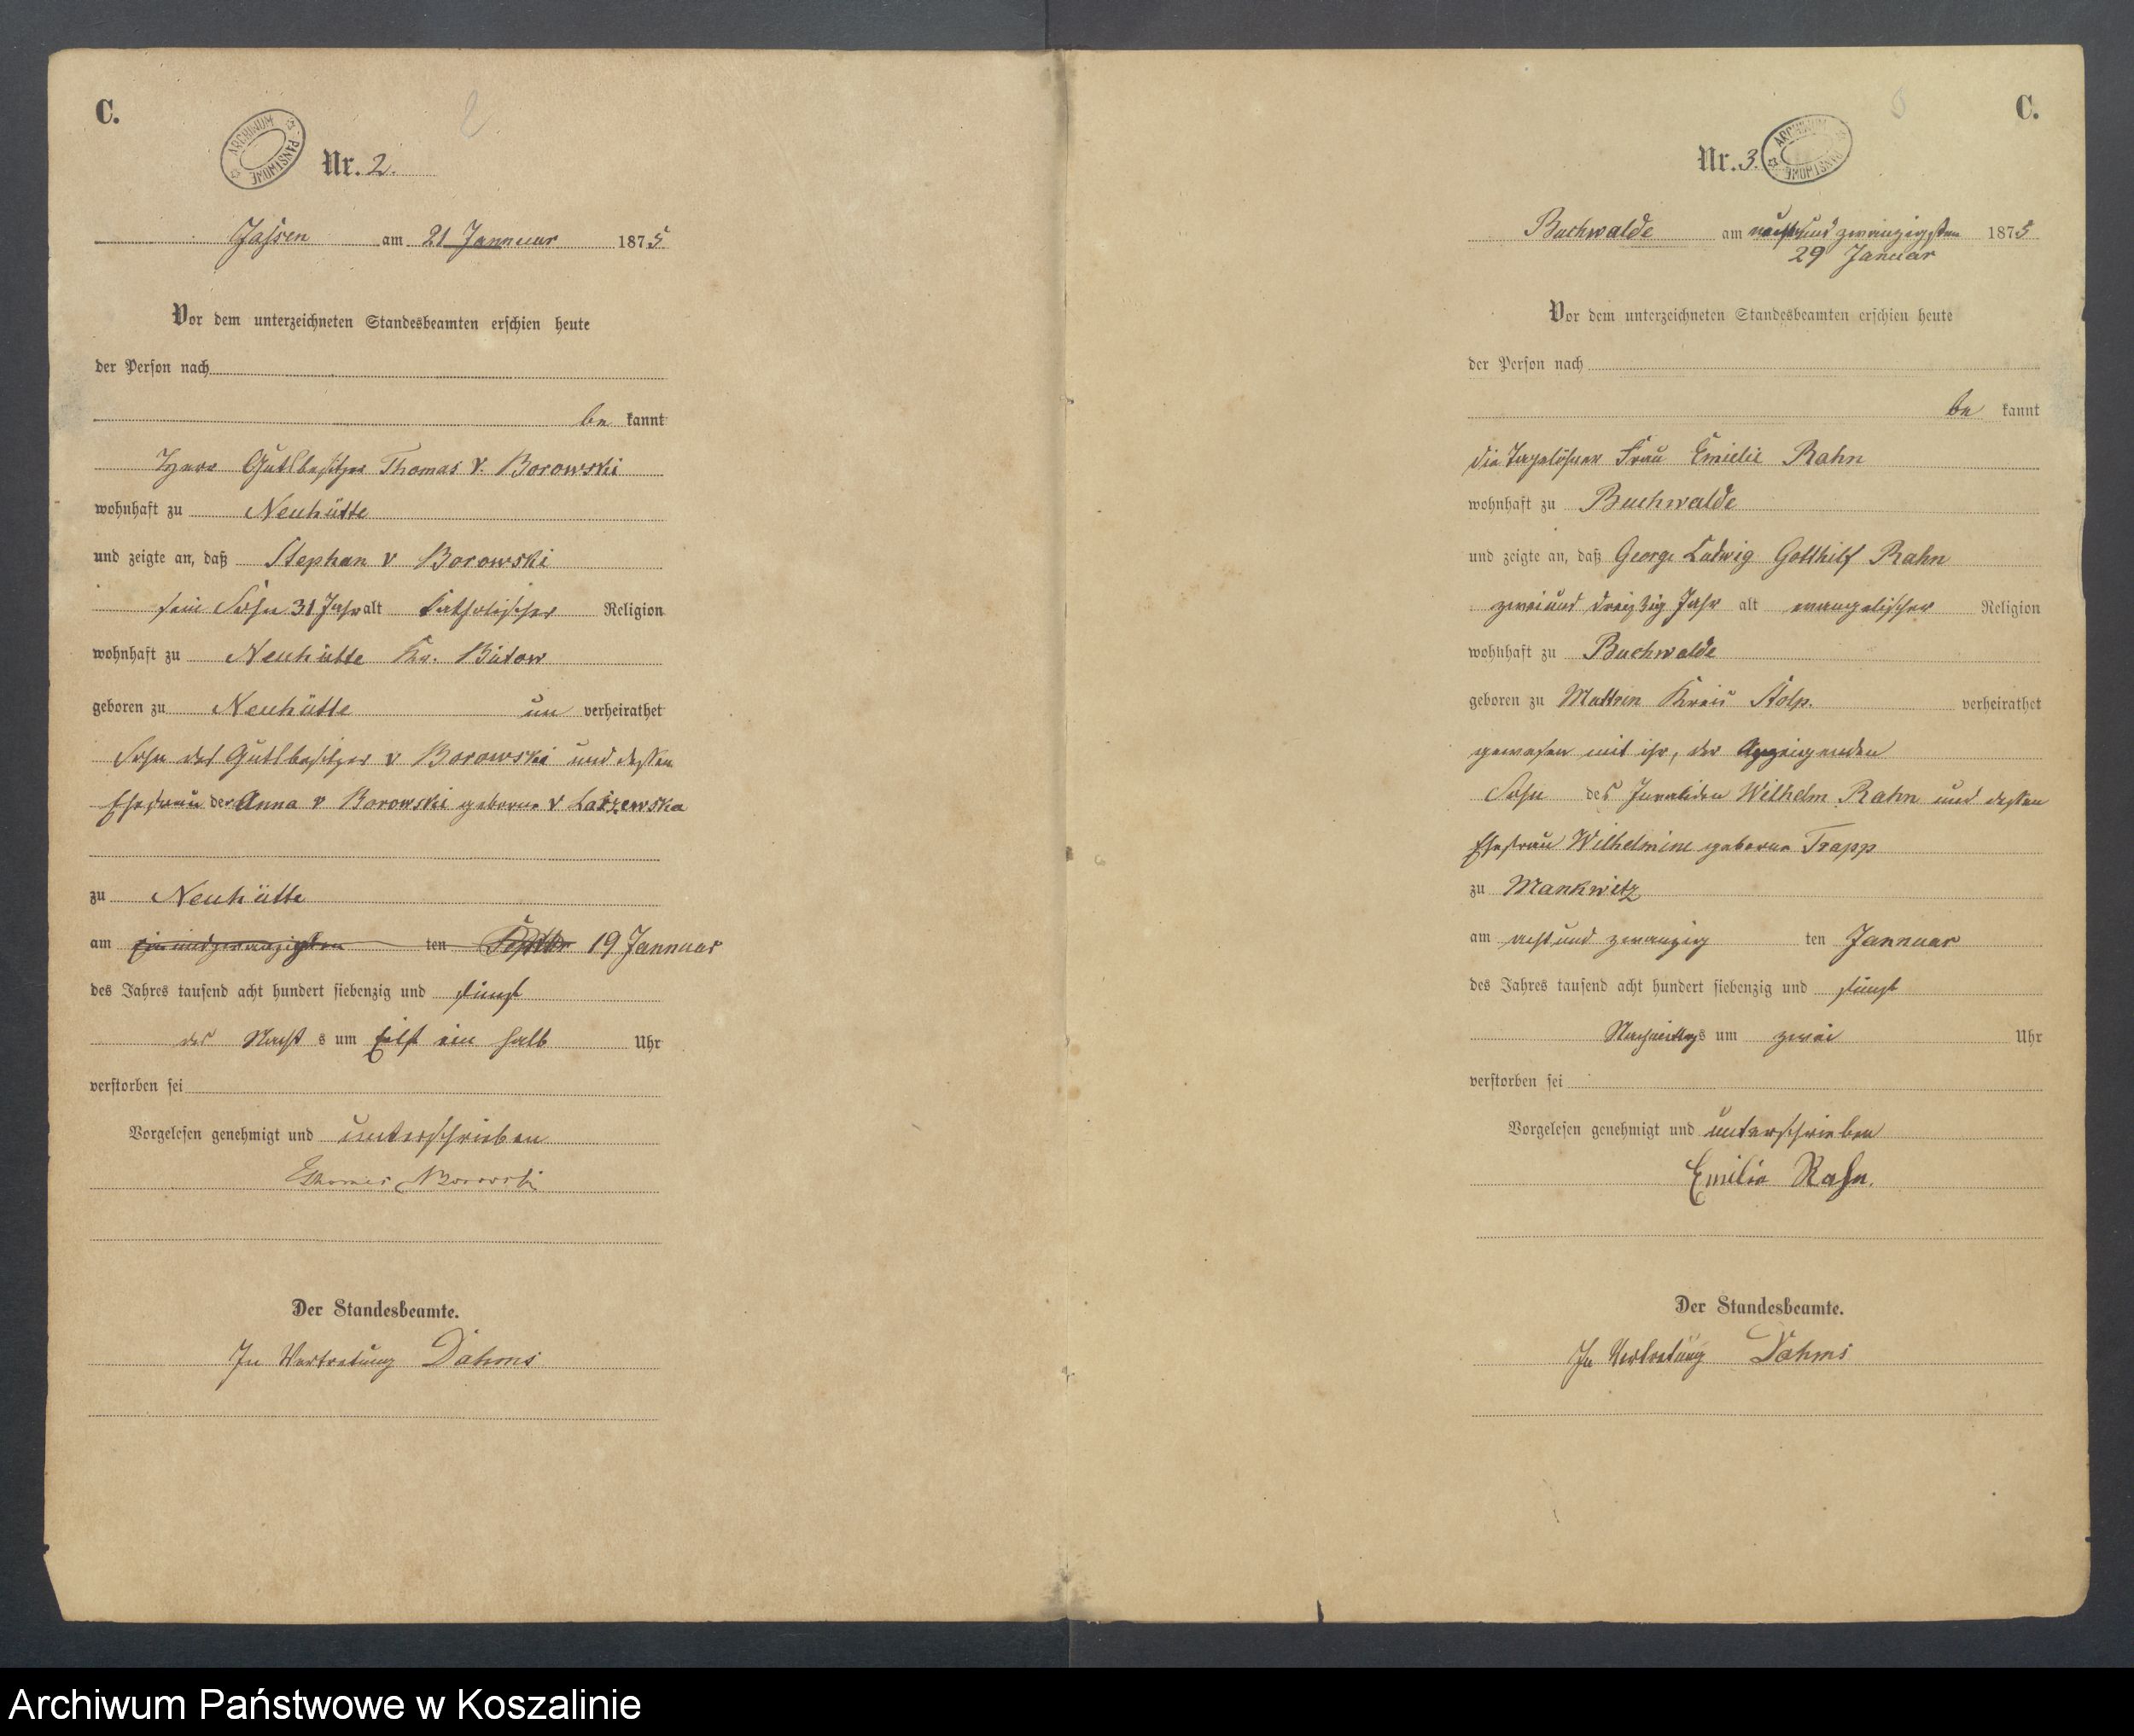 C.
2
ARCHIWUM PAŃSTWOWE
Nr. 2.
Jassen am 21 Jannuar 1875
Vor dem unterzeichneten Standesbeamten erschien heute
der Person nach
be kannt
Herr Gutsbesitzer Thomas v. Borowski
wohnhaft zu Neuhütte
und zeigte an, daß Stephan v Borowski
sein Sohn 31 Jahr alt katholischer Religion
wohnhaft zu Neuhütte Kr. Bütow
geboren zu Neuhütte un verheirathet
Sohn des Gutsbesitzer v Borowski und dessen
Ehefrau der Anna v Borowski geborne v
zu Neuhütte
am einundzwanzigsten ten 19 Jannuar
des Jahres tausend acht hundert siebenzig und fünf
des Nacht s um Eilf ein halb Uhr
verstorben sei
Vorgelesen genehmigt und unterschrieben
Thomas Borowski
Der Standesbeamte.
In Vertretung Dahms
C.
Nr. 3.
ARCHIWUM PAŃSTWOWE
Buchwalde am und zwanzigsten 1875
29 Januar
Vor dem unterzeichneten Standesbeamten erschien heute
der Person nach
be kannt
die Tagelöhner Frau Emielie Rahn
wohnhaft zu Buchwalde
und zeigte an, daß George Ludwig Gotthilf Rahn
zwei und dreißig Jahr alt evangelischer Religion
wohnhaft zu Buchwalde
geboren zu Muttrin Kreis Stolp. verheirathet
gewesen mit ihr, der Anzeigenden
Sohn des Invaliden Wilhelm Rahn und dessen
Ehefrau Wilhelmine geborne Trapp
zu Mankwitz
am acht und zwanzig ten Jannuar
des Jahres tausend acht hundert siebenzig und fünf
Nachmittags um zwei Uhr
verstorben sei
Vorgelesen genehmigt und unterschrieben
Emilie Rahn.
Der Standesbeamte.
In Vertretung Dahms
Archiwum Państwowe w Koszalinie